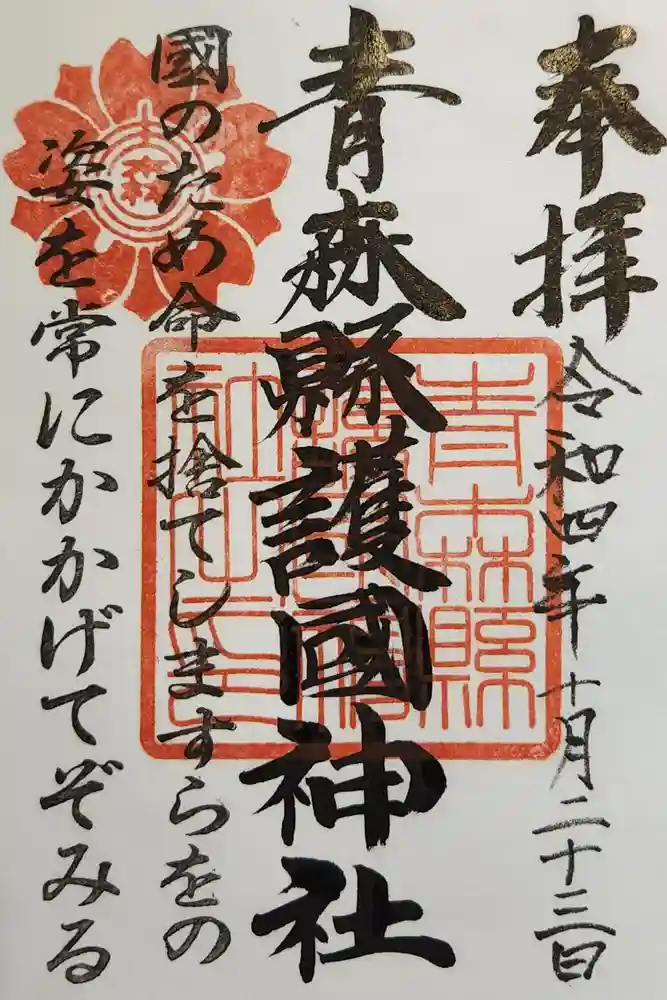 奉拝
令和四年十月二十三日
青森縣護國神社
國のため命を捨てしますらをの
姿を常にかかげてぞみる
森
青森縣護國神社之印